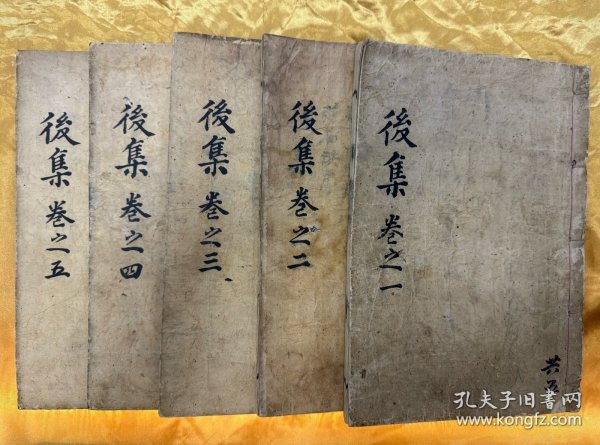 後集 卷之一
共五
後集 卷之二
後集 卷之三
後集 卷之四
後集 卷之五
孔夫子旧书网
www.kongfz.com